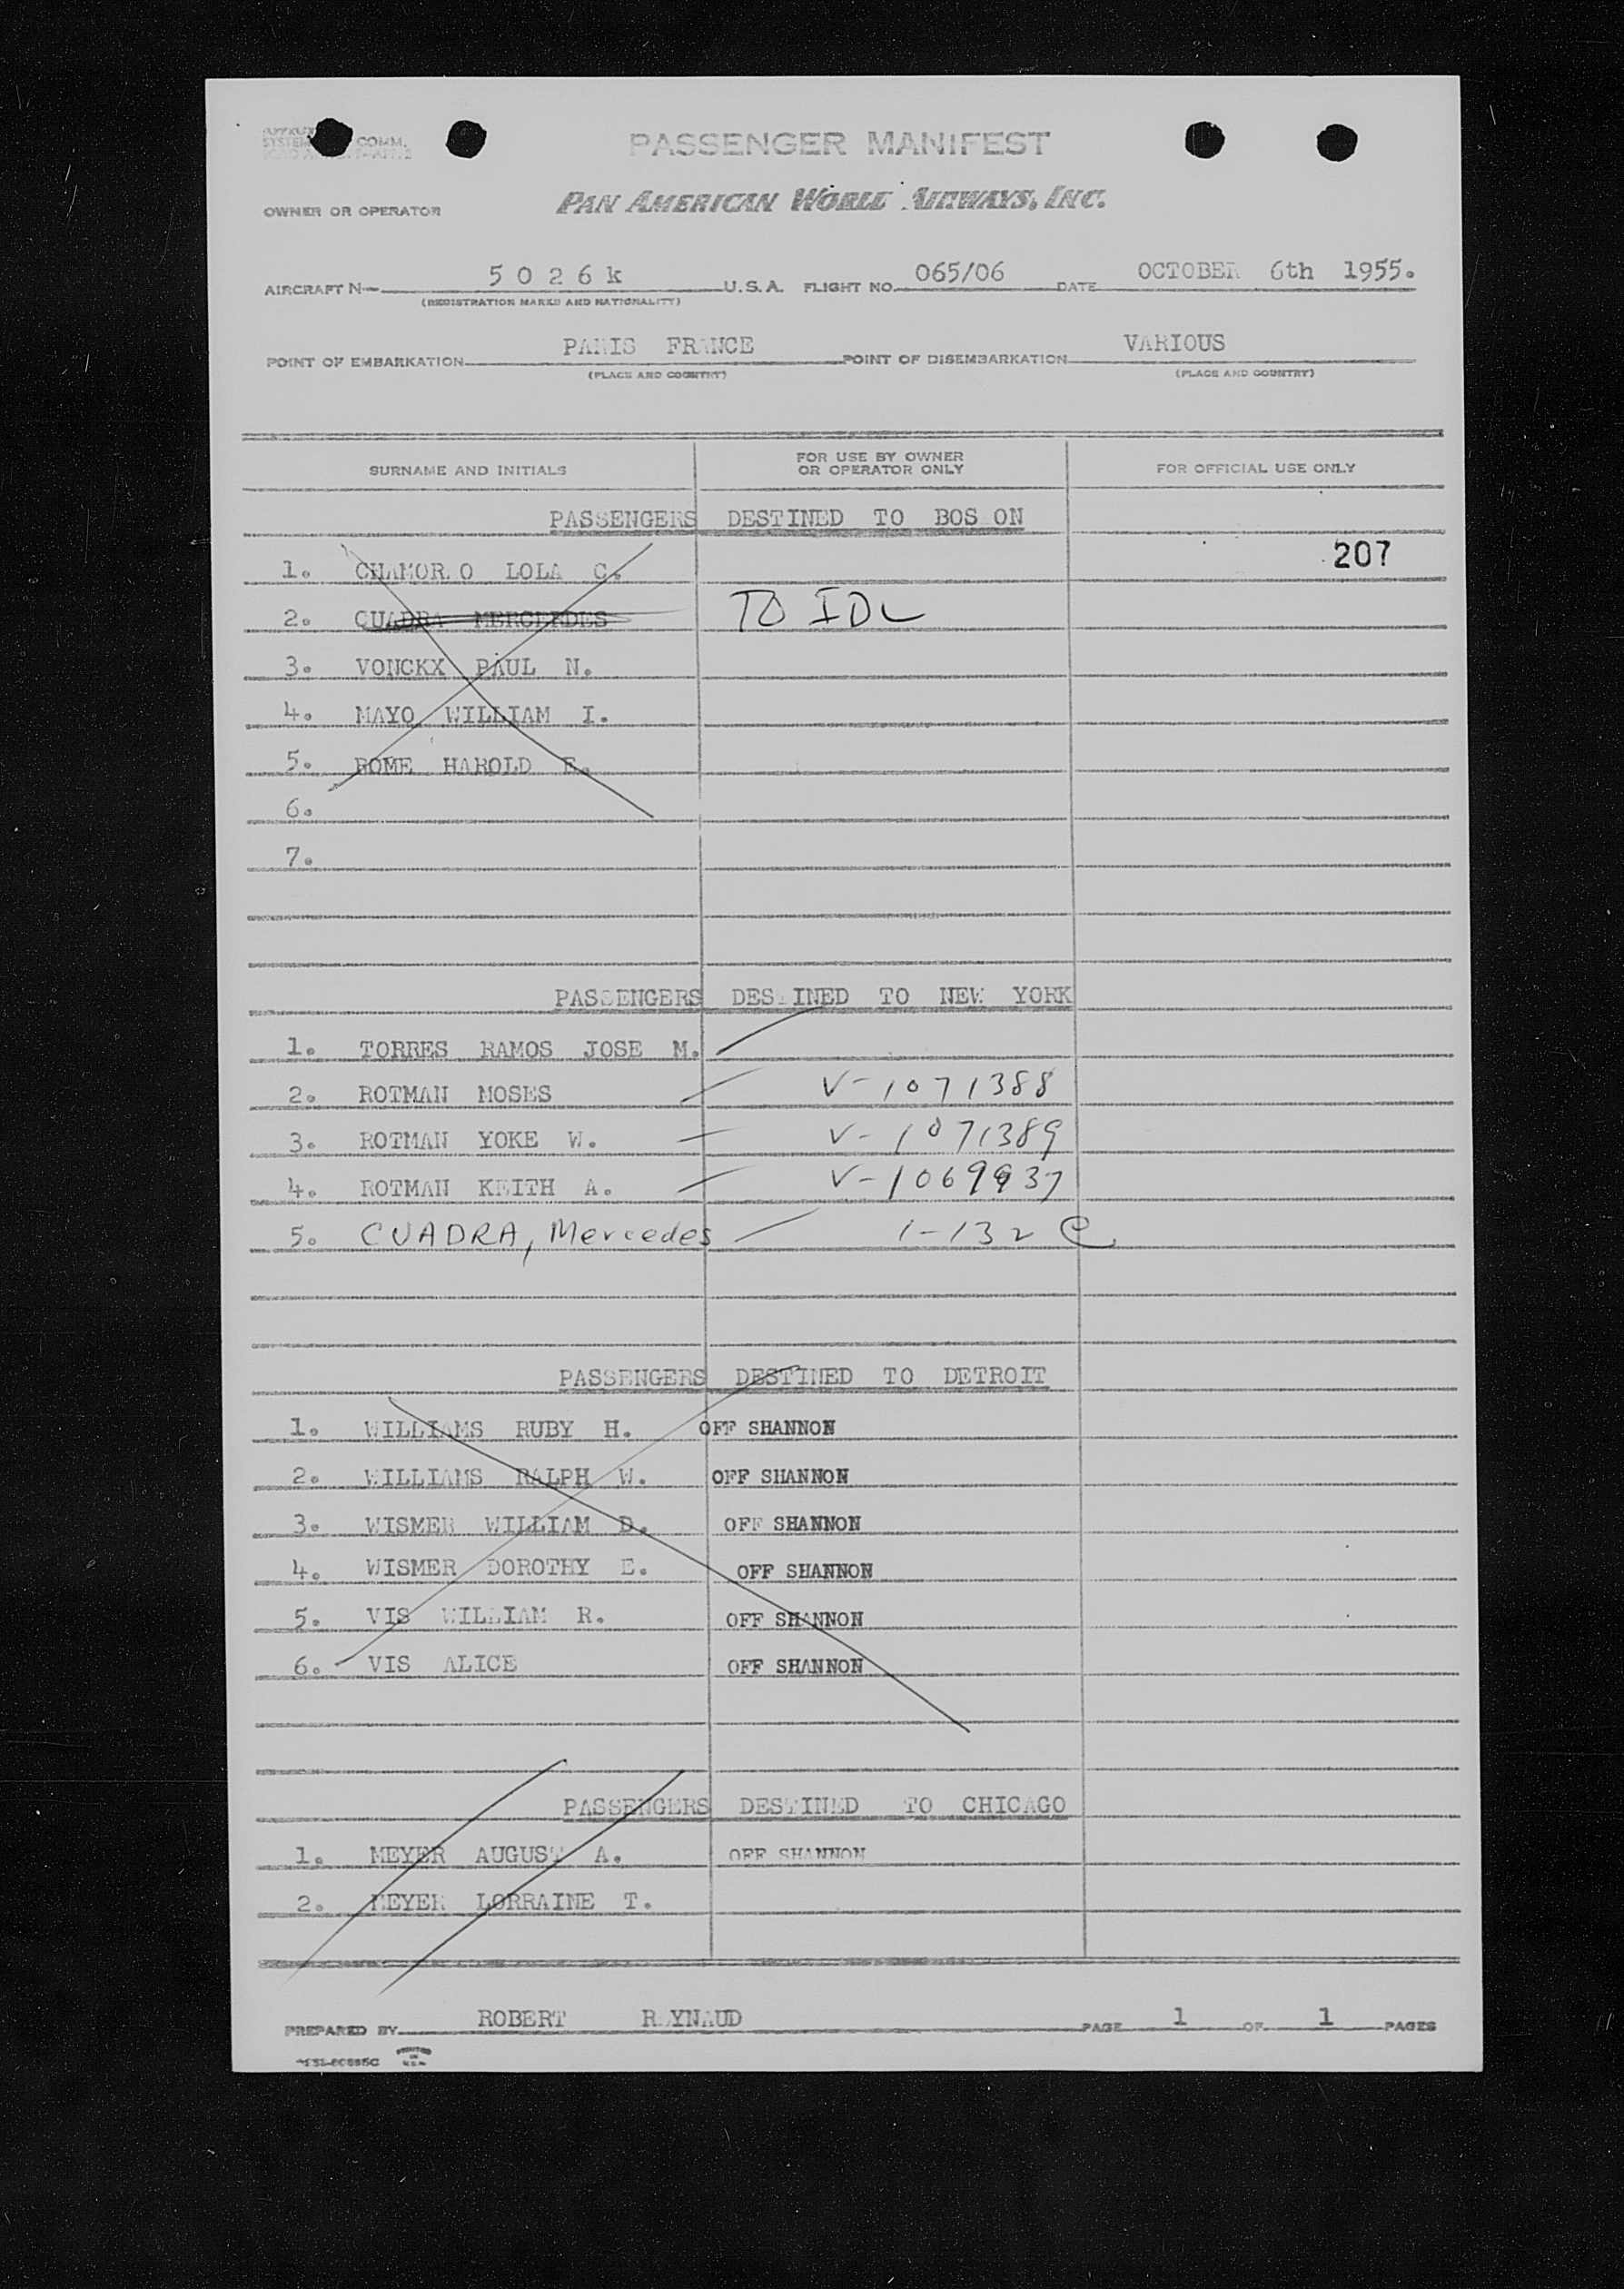 COMM.
PASSENGER MANIFEST
OWNER OR OPERATOR PAN AMERICAN WORLD AIRWAYS, INC.
AIRCRAFT N- 5 0 2 6 k U.S.A. FLIGHT NO. 065/06 DATE OCTOBER 6th 1955.
(REGISTRATION MARKS AND NATIONALITY)
POINT OF EMBARKATION PARIS FRANCE POINT OF DISEMBARKATION VARIOUS
(PLACE AND COUNTRY) (PLACE AND COUNTRY)
SURNAME AND INITIALS FOR USE BY OWNER OR OPERATOR ONLY FOR OFFICIAL USE ONLY
PASSENGERS DESTINED TO BOS ON
207
1. CHAMOR.O LOLA C.
2. QUADRA MERCEEDES TO IDL
3. VONCKX PAUL N.
4. MAYO WILLIAM I.
5. ROME HAROLD
6.
7.
PASSENGERS DESTINED TO NEW YORK
1. TORRES RAMOS JOSE M.
2. ROTMAN MOSES V-1071388
3. ROTMAN YOKE W. V-1071389
4. ROTMAN KEITH A. V-1069937
5. CUADRA, Mercedes 1-132 C
PASSENGERS DESTINED TO DETROIT
1. WILLIAMS RUBY H. OFF SHANNON
2. WILLIAMS RALPH W. OFF SHANNON
3. WISMER WILLIAM D. OFF SHANNON
4. WISMER DOROTHY E. OFF SHANNON
5. VIS WILLIAM R. OFF SHANNON
6. VIS ALICE OFF SHANNON
PASSENGERS DESTINED TO CHICAGO
1. MEYER AUGUST A. OFF SHANNON
2. MEYER LORRAINE T.
PREPARED BY ROBERT R.YNAUD PAGE 1 OF 1 PAGES
PRINTED IN U.S.A.